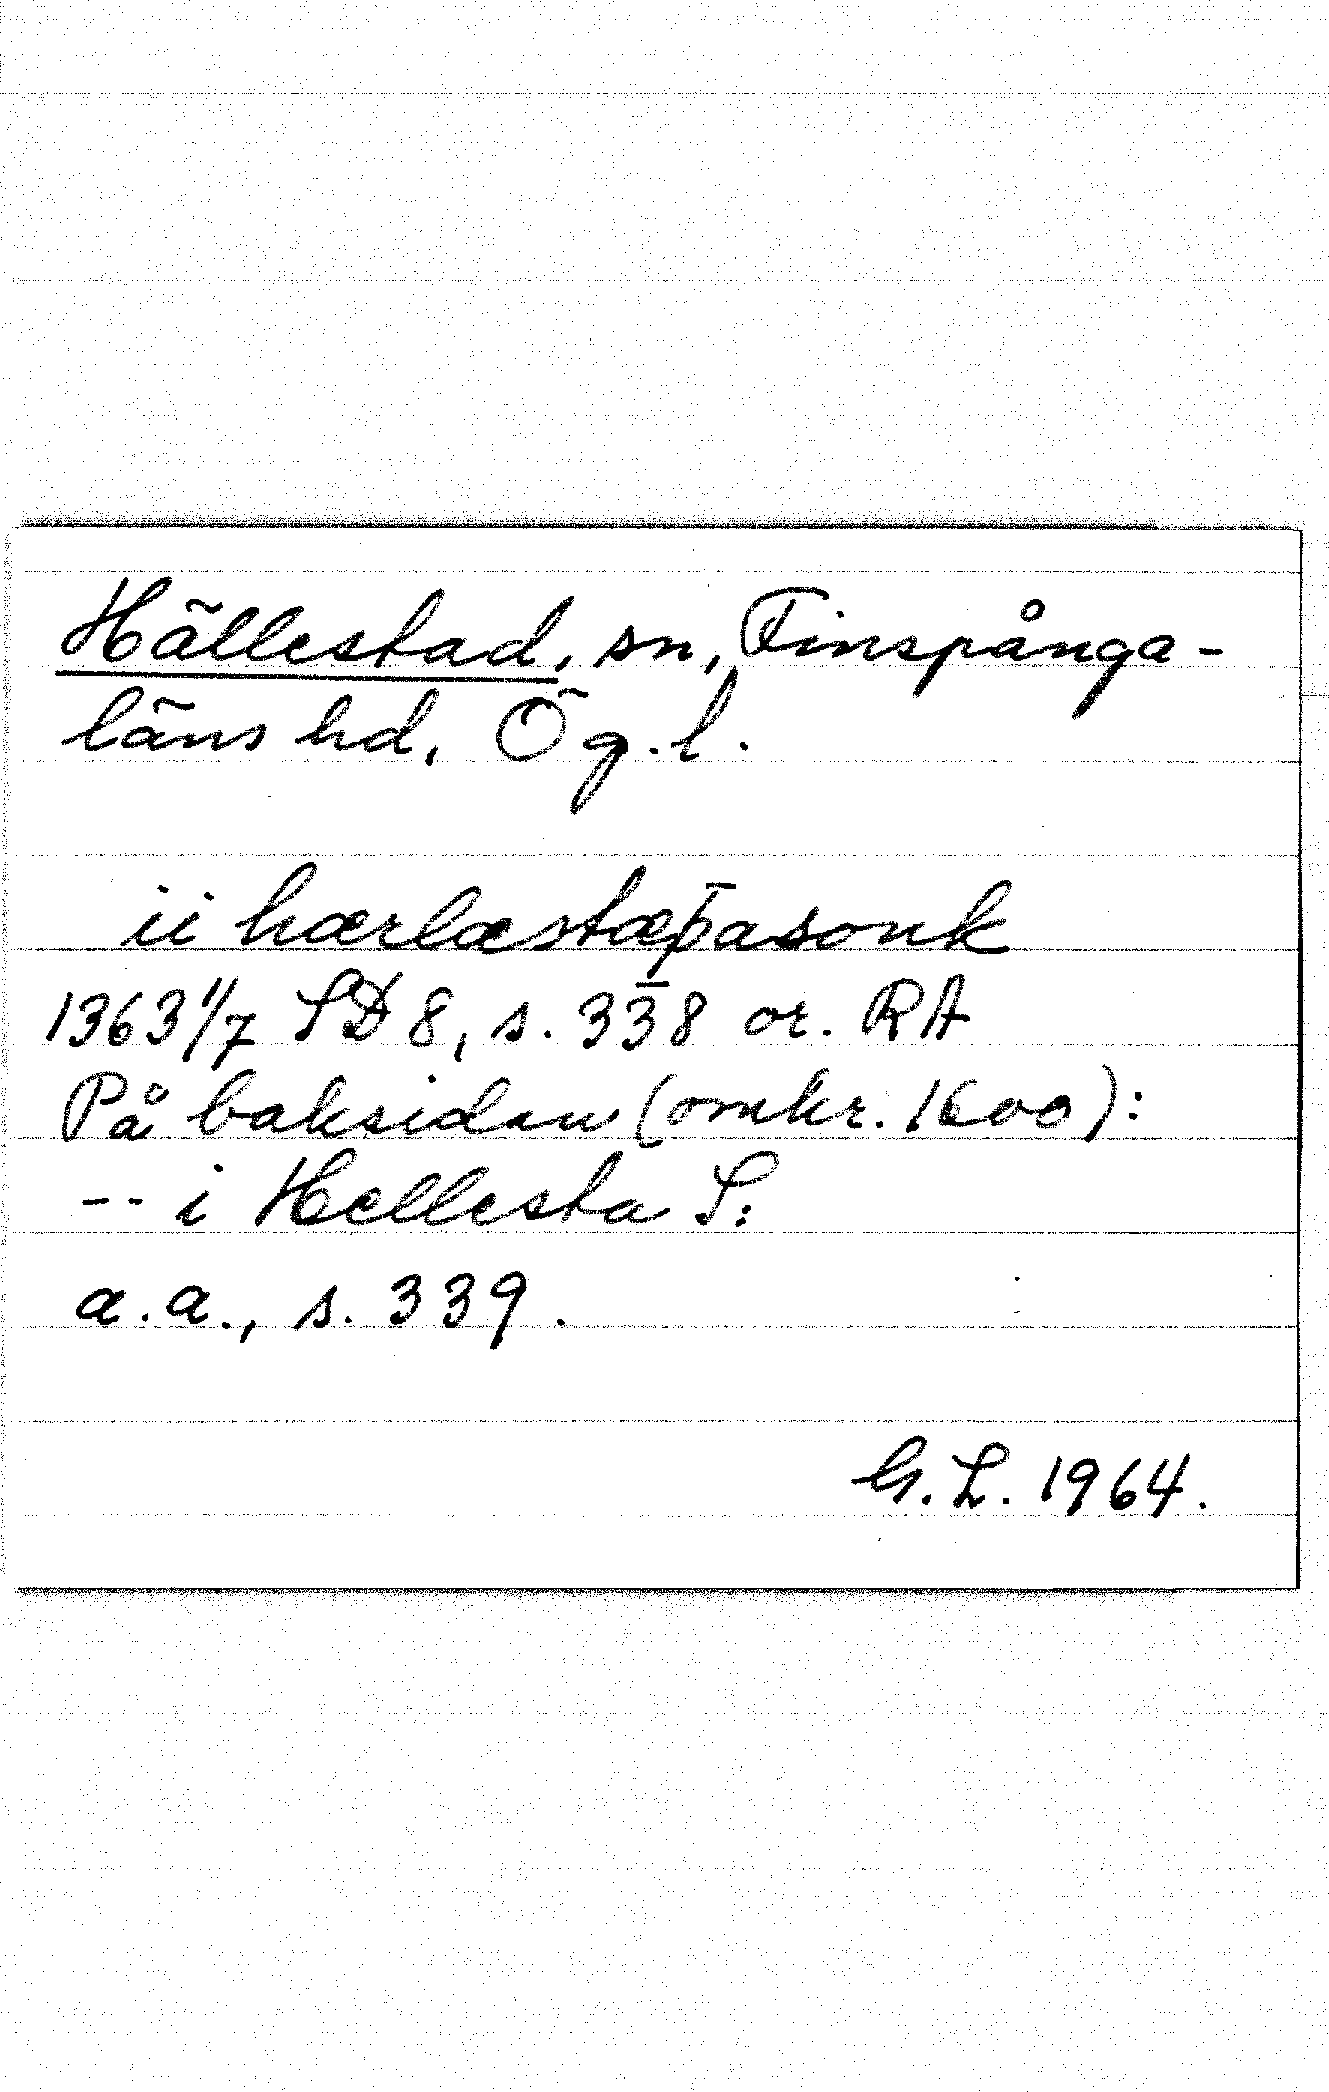 Hällestad, sn, Finspånga-
läns hd, Ög. l.
ii hærlæstæþasonk
1363 1/7 SD 8, s. 338 or. RA
På baksidan (omkr. 1600):
-- i Hellesta S:
a.a., s. 339.
G. L. 1964.